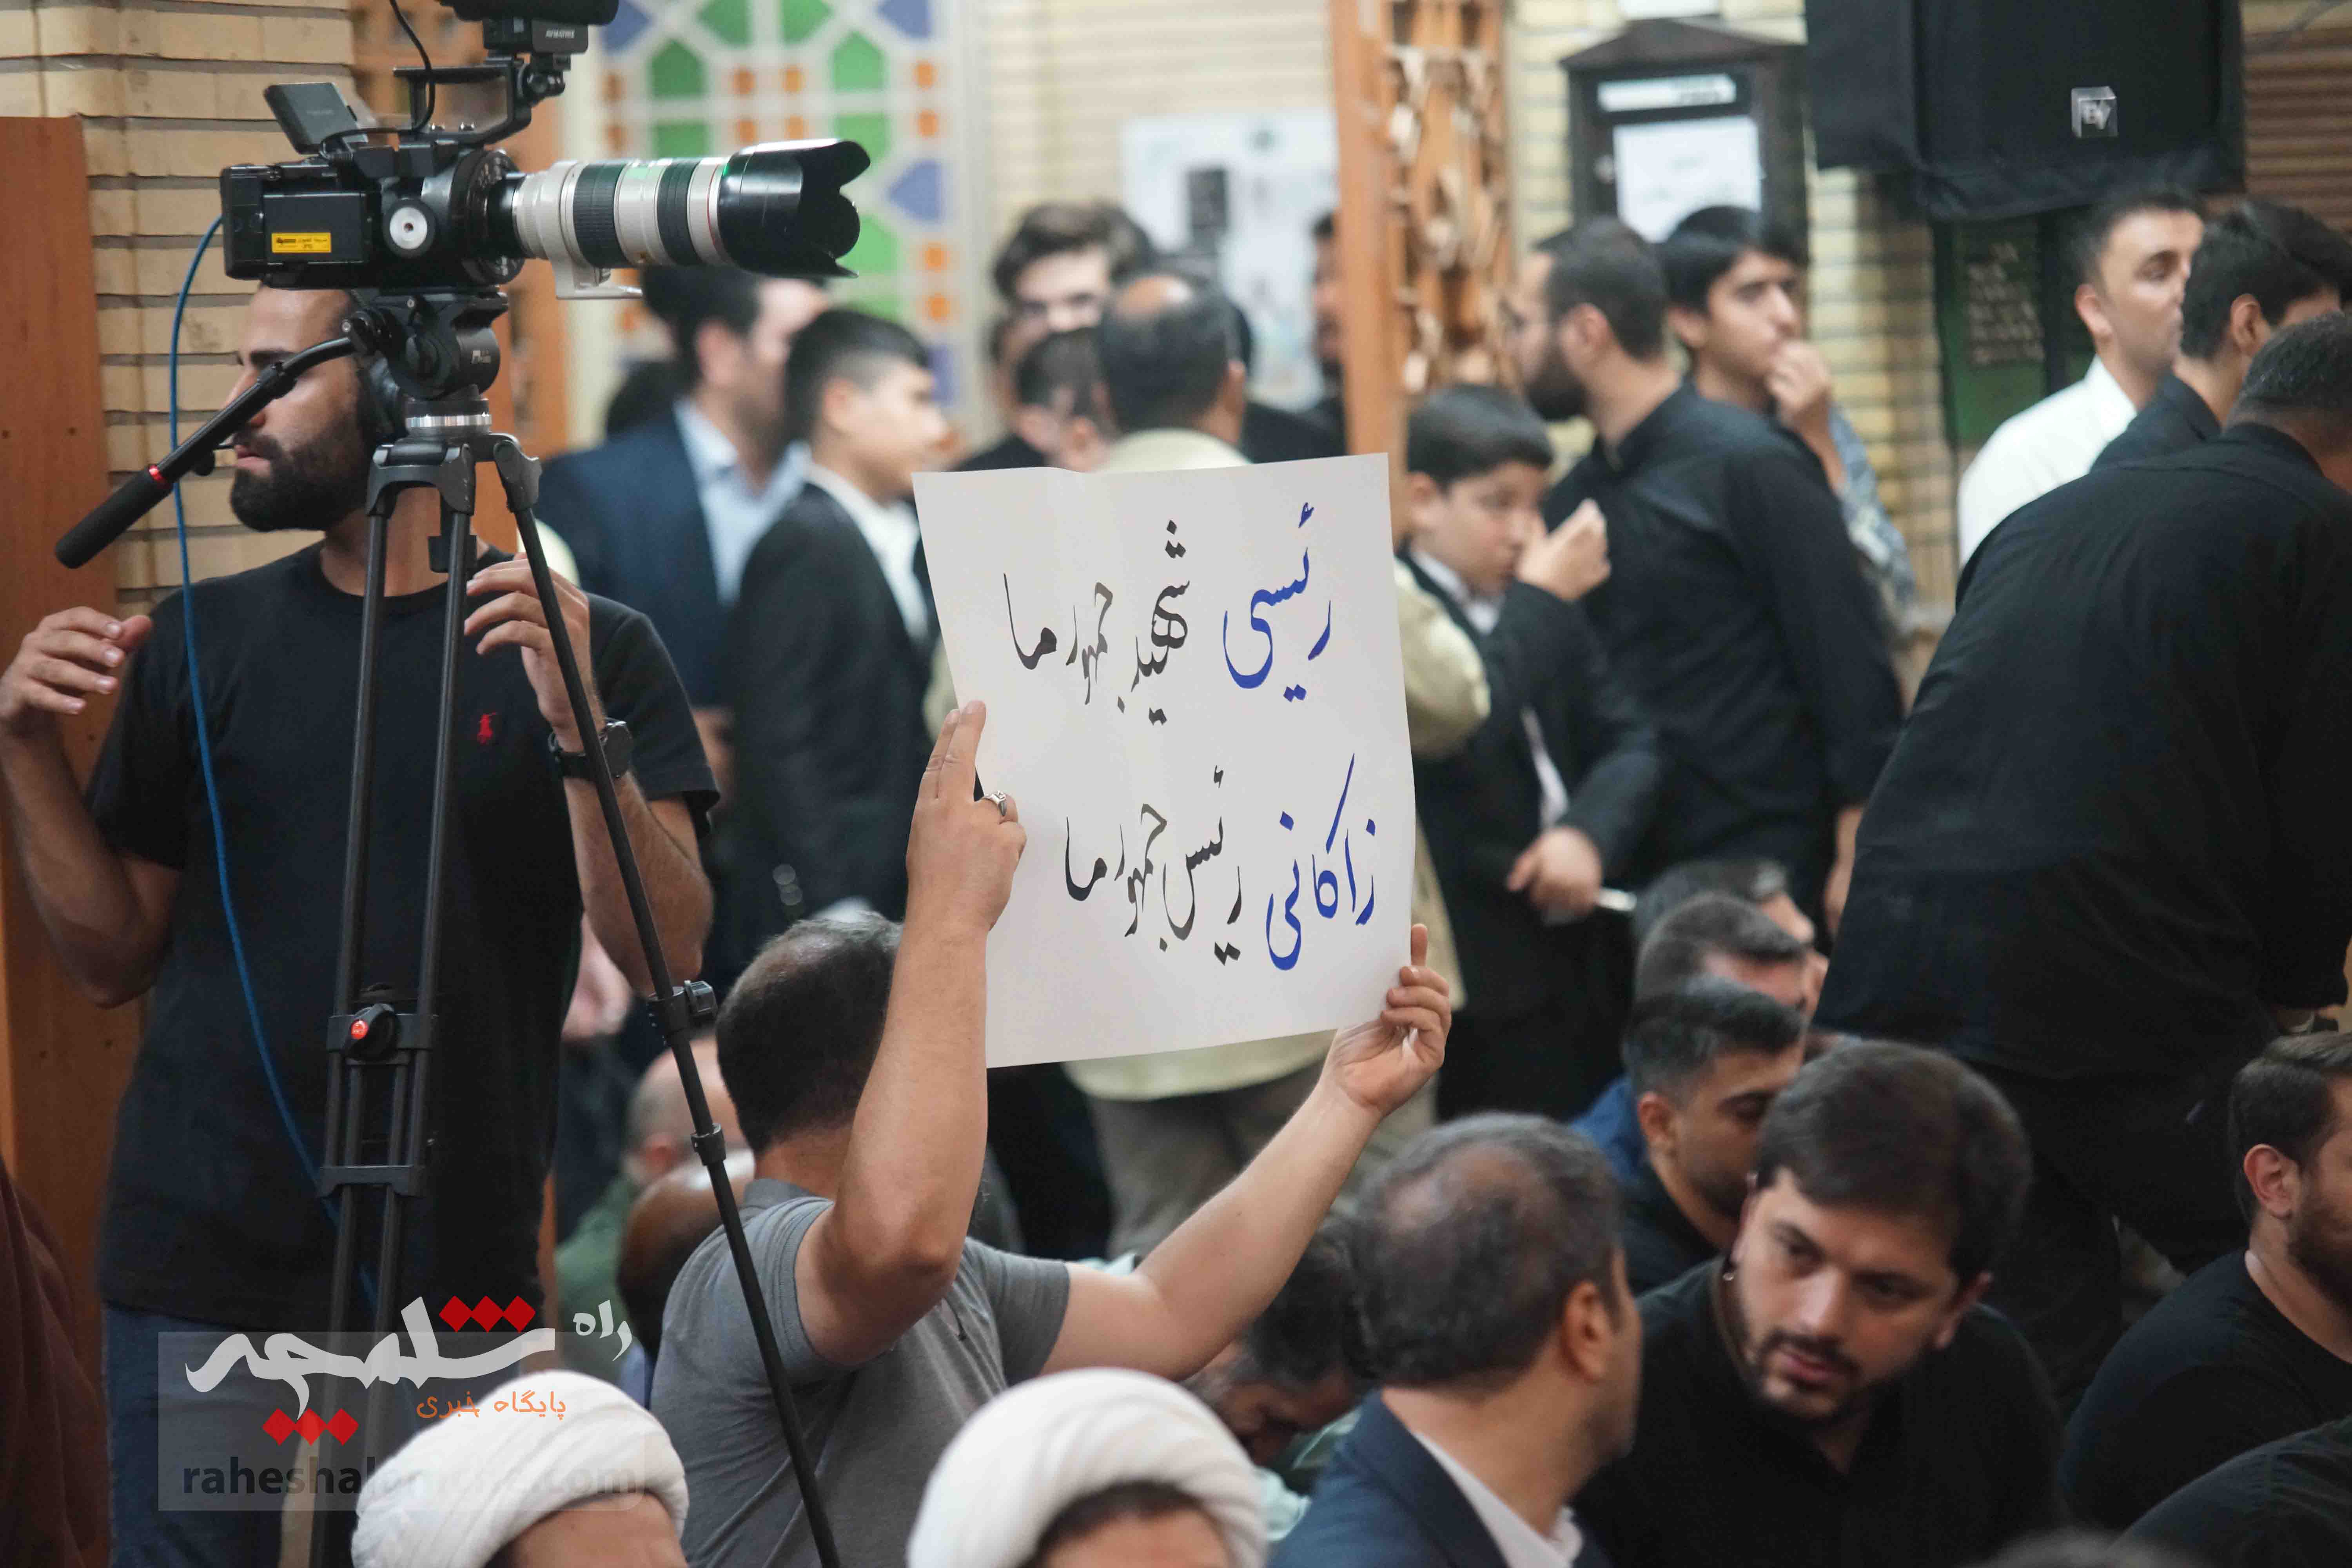 رئیسی شهید جمهور ما
زاکانی رئیس جمهور ما
راه شلمچه
پایگاه خبری